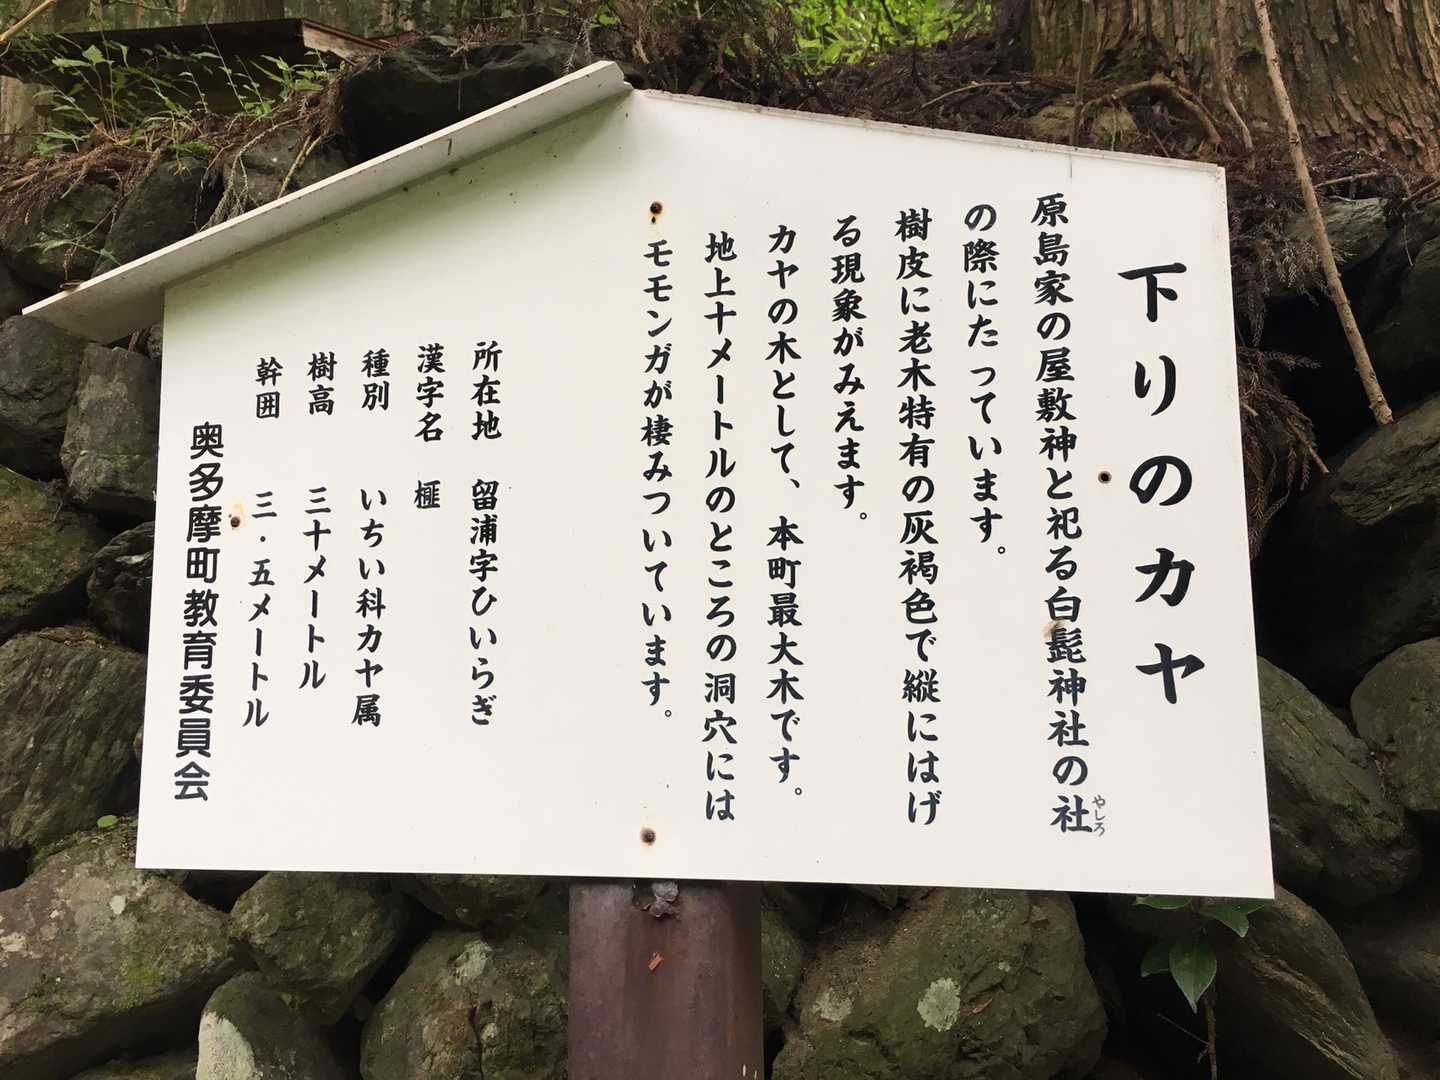 下りのカヤ
原島家の屋敷神と祀る白髭神社の社
やしろ
の際にたっています。
樹皮に老木特有の灰褐色で縦にはげ
る現象がみえます。
カヤの木として、本町最大木です。
地上十メートルのところの洞穴には
モモンガが棲みついています。
所在地 留浦字ひいらぎ
漢字名 榧
種別 いちい科カヤ属
樹高 三十メートル
幹囲 三・五メートル
奥多摩町教育委員会